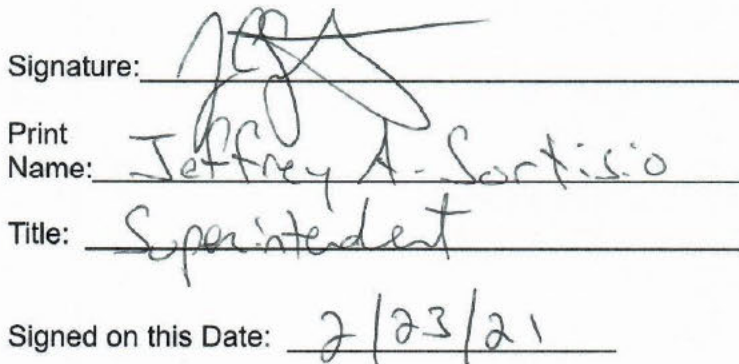 Signature:
Print
Name: Jeffrey A. Sortisio
Title: Superintendent
Signed on this Date: 2/23/21